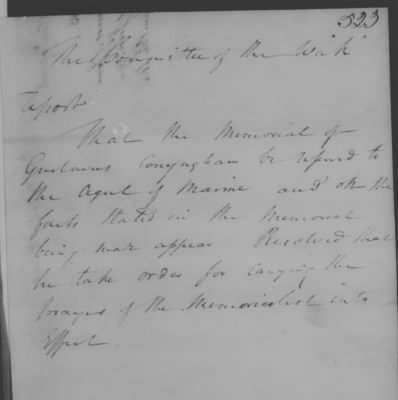 323
The Committee of the Week
report
That the Memorial of
Gustavus Conyngham be refered to
the Agent of Marine and on the
facts stated in the Memorial
being made appear Resolved that
he take order for carrying the
prayer of the Memorialist into
Effect.